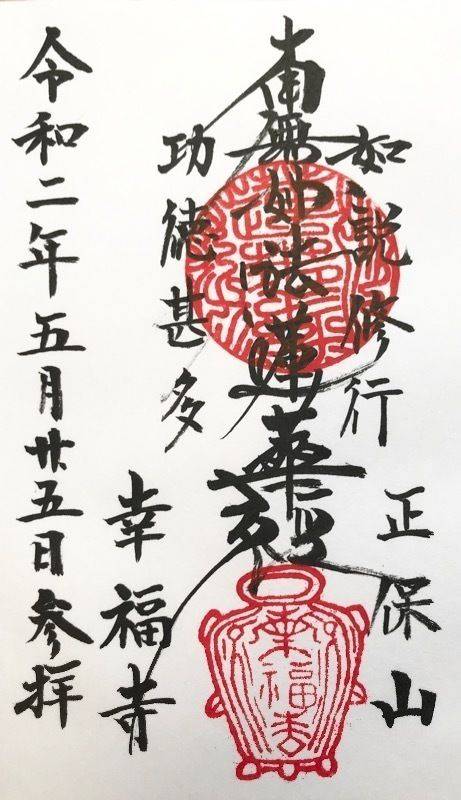 正保山
如説修行
南無妙法蓮華経
功徳甚多
幸福寺
令和二年五月廿五日参拝
幸福寺